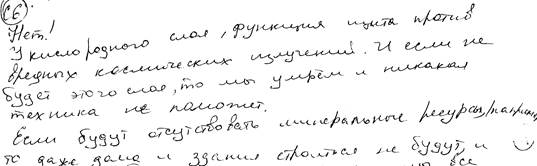 С6.
Нет!
У кислородного слоя, функция щита против
вредных космических излучений. И если не
будет этого слоя, то мы умрём и никакая
техника не поможет.
Если будут отсутствовать минеральные ресурсы,
то даже дома и здания строиться не будут, и
все